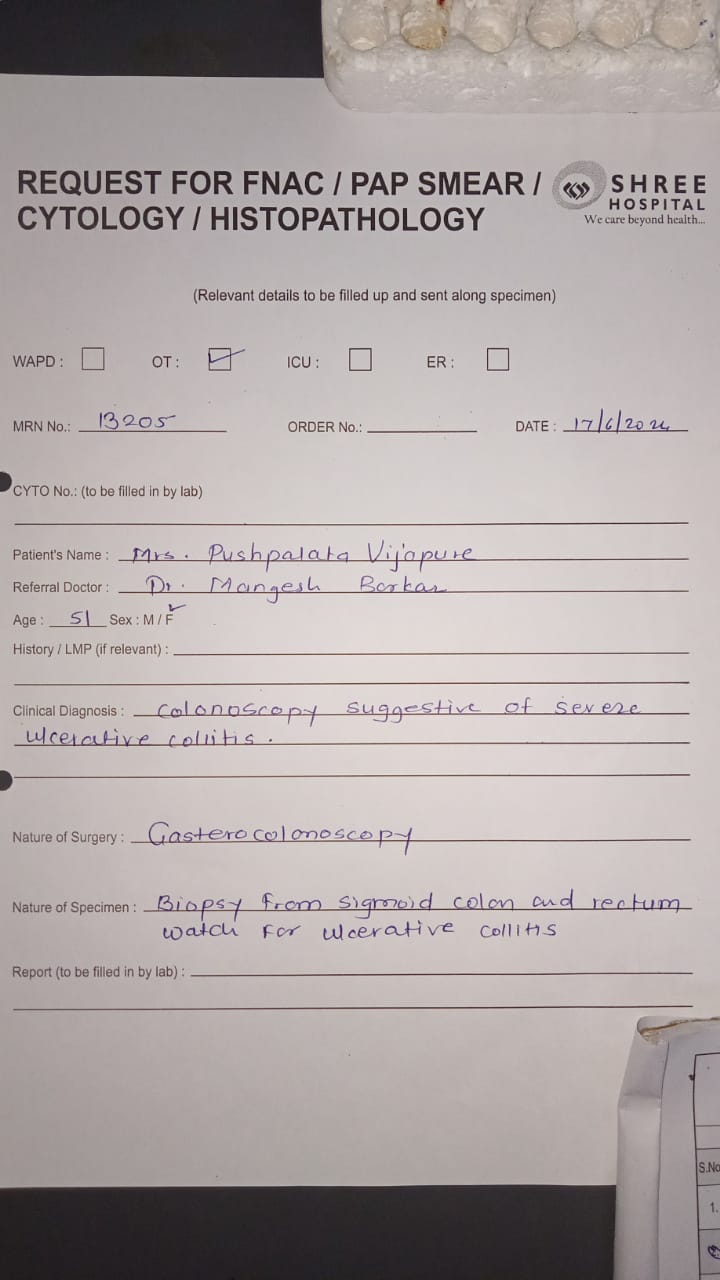 REQUEST FOR FNAC / PAP SMEAR /
CYTOLOGY / HISTOPATHOLOGY
SHREE
HOSPITAL
We care beyond health...
(Relevant details to be filled up and sent along specimen)
WAPD : OT : ICU : ER :
MRN No.: 13205 ORDER No.: DATE : 17/6/2024
CYTO No.: (to be filled in by lab)
Patient's Name : Mrs. Pushpalata Vijapure
Referral Doctor : Dr. Mangesh Borkar
Age : 51 Sex : M / F
History / LMP (if relevant) :
Clinical Diagnosis : colonoscopy suggestive of severe
ulcerative collitis.
Nature of Surgery : Gasterocolonoscopy
Nature of Specimen : Biopsy from sigmoid colon and rectum
watch for ulcerative collitis
Report (to be filled in by lab) :
S.No
1.